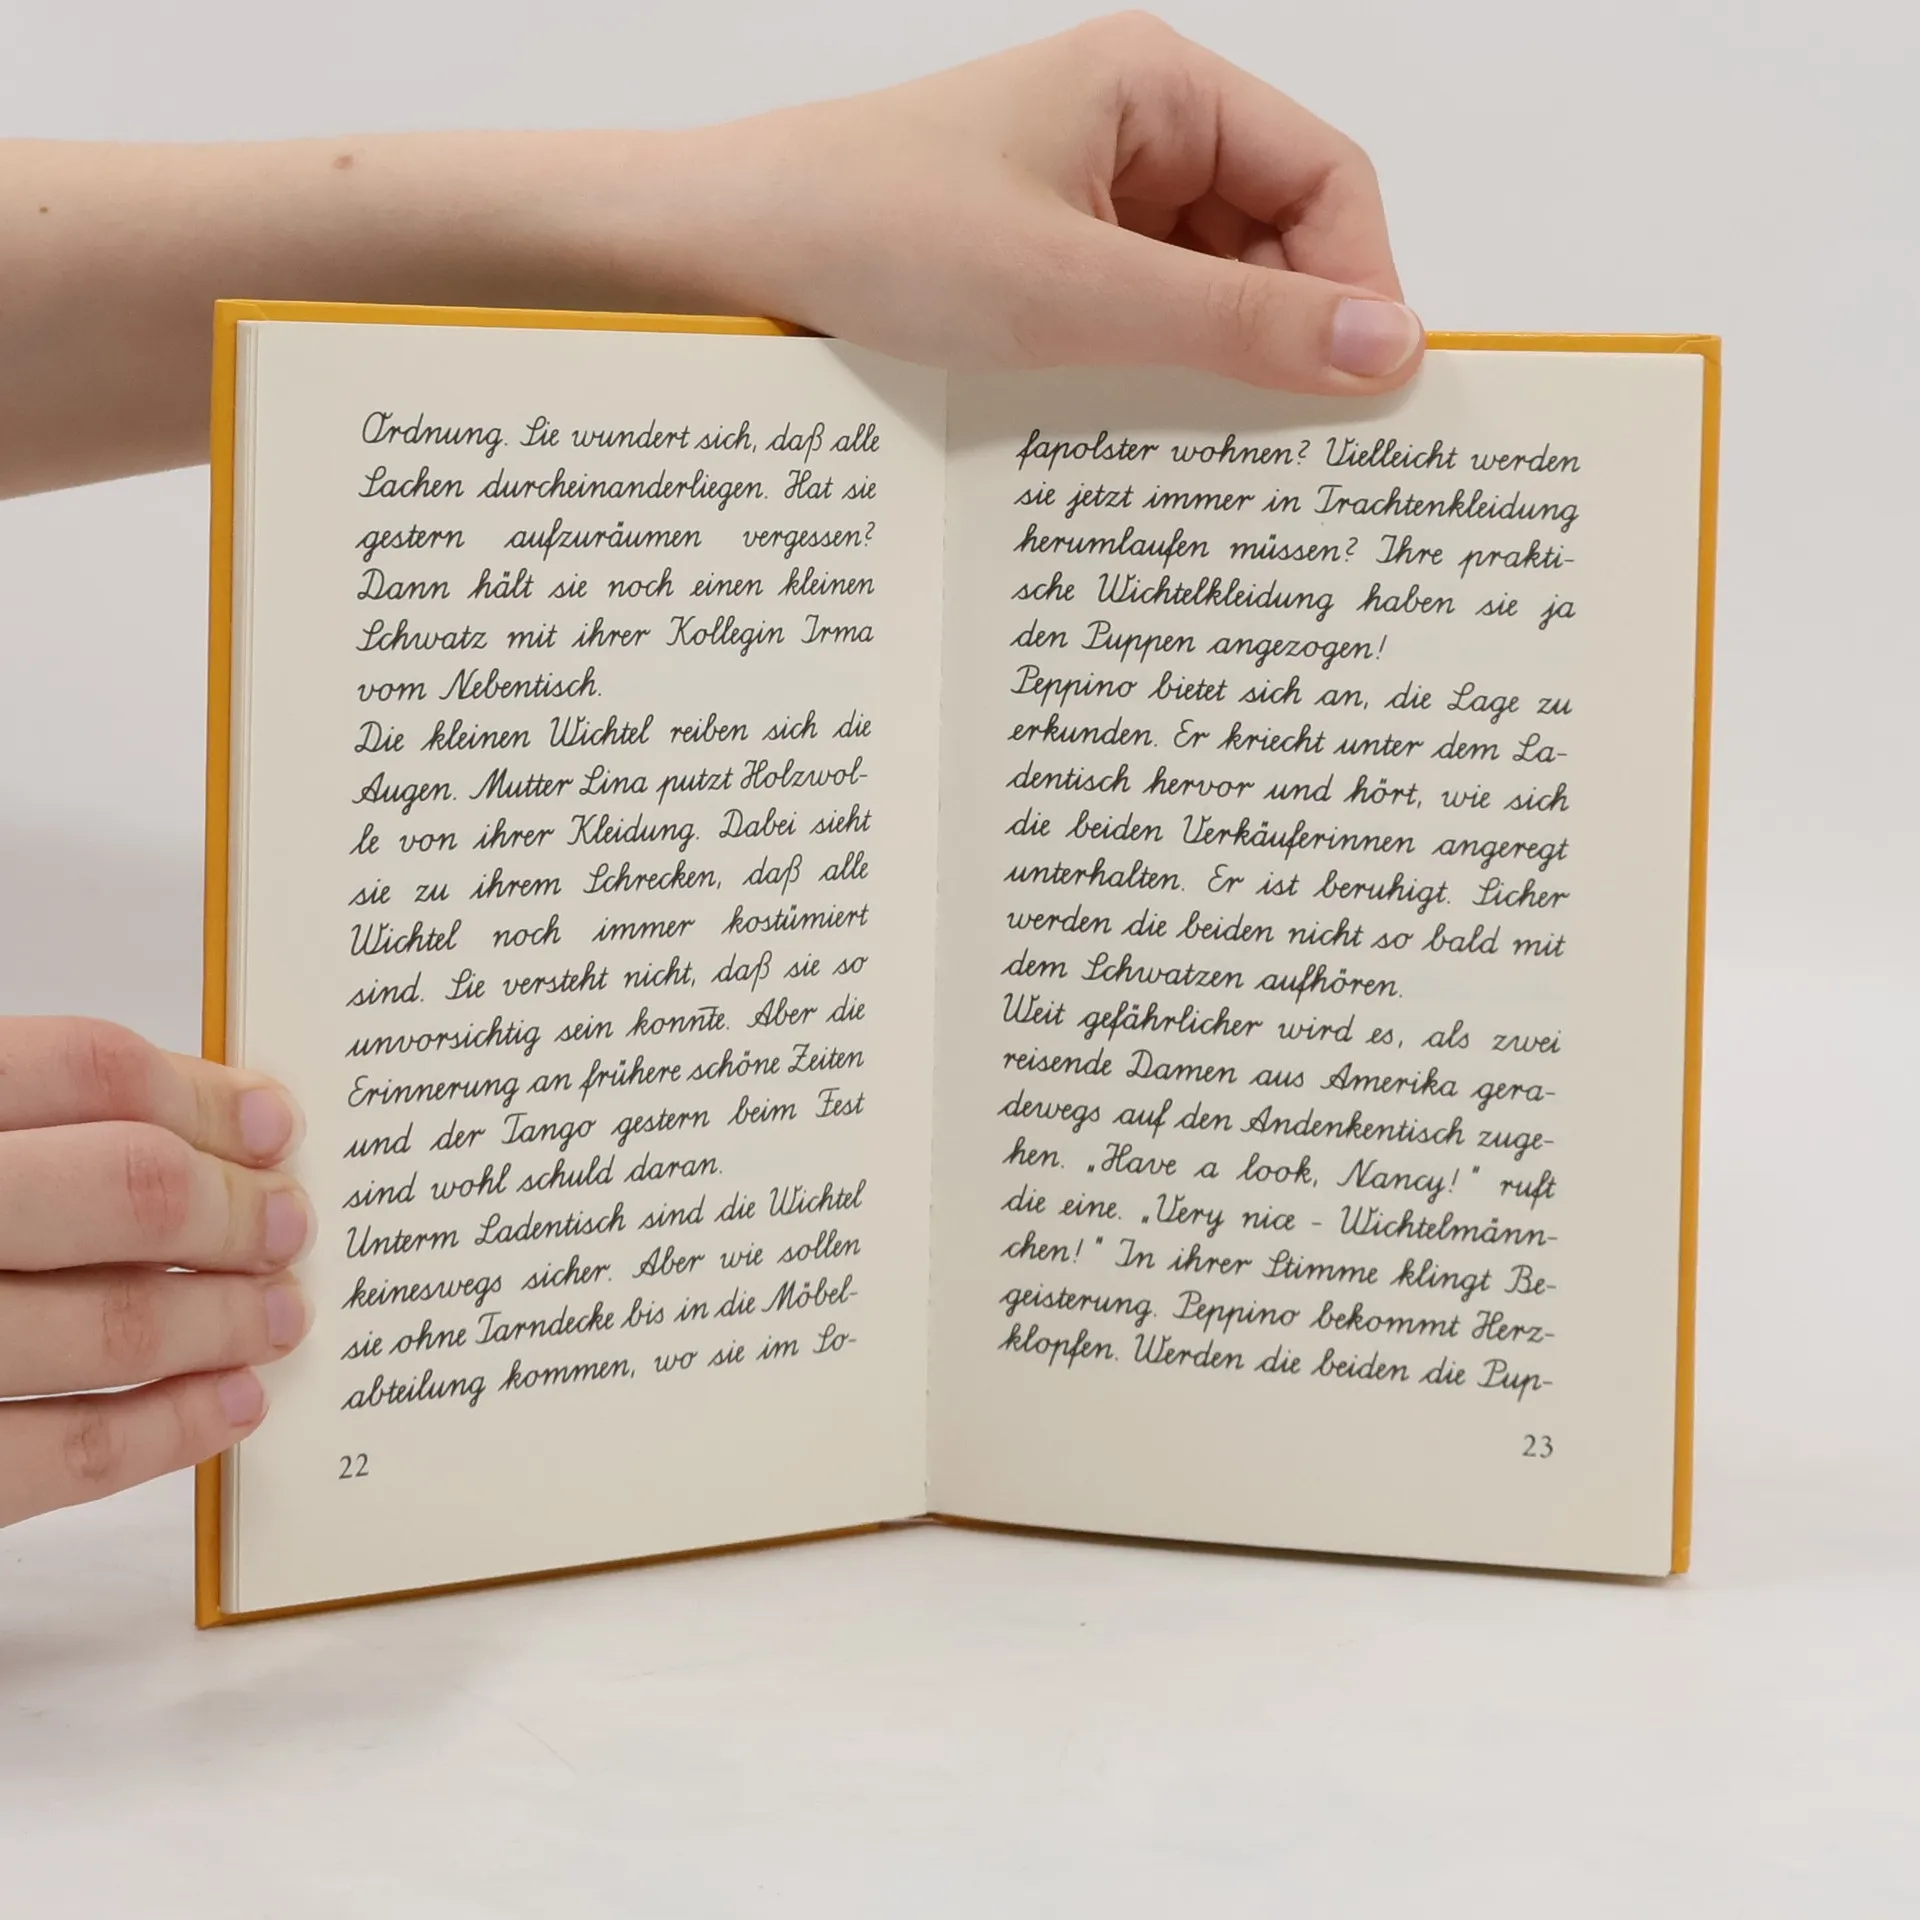 Ordnung. Sie wundert sich, daß alle
Sachen durcheinanderliegen. Hat sie
gestern aufzuräumen vergessen?
Dann hält sie noch einen kleinen
Schwatz mit ihrer Kollegin Irma
vom Nebentisch.
Die kleinen Wichtel reiben sich die
Augen. Mutter Lina putzt Holzwol-
le von ihrer Kleidung. Dabei sieht
sie zu ihrem Schrecken, daß alle
Wichtel noch immer kostümiert
sind. Sie versteht nicht, daß sie so
unvorsichtig sein konnte. Aber die
Erinnerung an frühere schöne Zeiten
und der Tango gestern beim Fest
sind wohl schuld daran.
Unterm Ladentisch sind die Wichtel
keineswegs sicher. Aber wie sollen
sie ohne Tarndecke bis in die Möbel-
abteilung kommen, wo sie im So-
22
fapolster wohnen? Vielleicht werden
sie jetzt immer in Trachtenkleidung
herumlaufen müssen? Ihre prakti-
sche Wichtelkleidung haben sie ja
den Puppen angezogen!
Peppino bietet sich an, die Lage zu
erkunden. Er kriecht unter dem La-
dentisch hervor und hört, wie sich
die beiden Verkäuferinnen angeregt
unterhalten. Er ist beruhigt. Sicher
werden die beiden nicht so bald mit
dem Schwatzen aufhören.
Weit gefährlicher wird es, als zwei
reisende Damen aus Amerika gera-
dewegs auf den Andenkentisch zuge-
hen. „Have a look, Nancy!" ruft
die eine. „Very nice - Wichtelmänn-
chen!" In ihrer Stimme klingt Be-
geisterung. Peppino bekommt Herz-
klopfen. Werden die beiden die Pup-
23